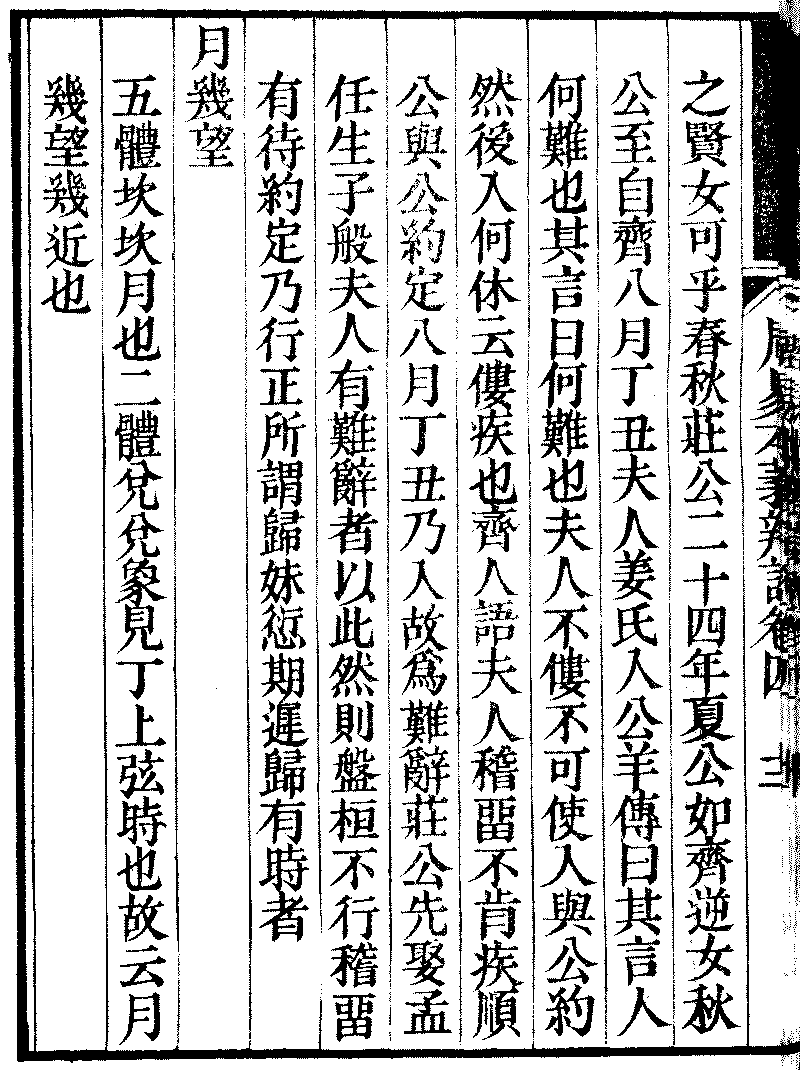 之賢女可乎春秋莊公二十四年夏公如齊逆女秋
公至自齊八月丁丑夫人姜氏入公羊傳曰其言人
何難也其言曰何難也夫人不僂不可使入與公約
然後入何休云僂疾也齊人語夫人稽畱不肯疾順
公與公約定八月丁丑乃入故爲難辭莊公先娶孟
任生子般夫人有難辭者以此然則盤桓不行稽畱
有待約定乃行正所謂歸妹愆期遲歸有時者
月幾望
五體坎坎月也二體兌兌象見丁上弦時也故云月
幾望幾近也